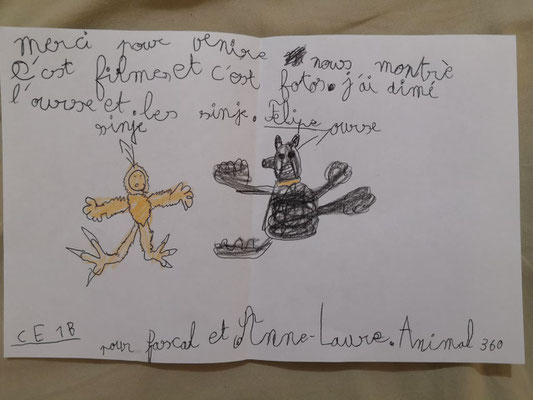 Merci pour venire nous montrè
c'est filmes et c'est fotos. j'ai aimé
l'ourse et les sinje. Felipe
sinje
ourse
CE1B
pour Pascal et Anne-Laure. Animal 360